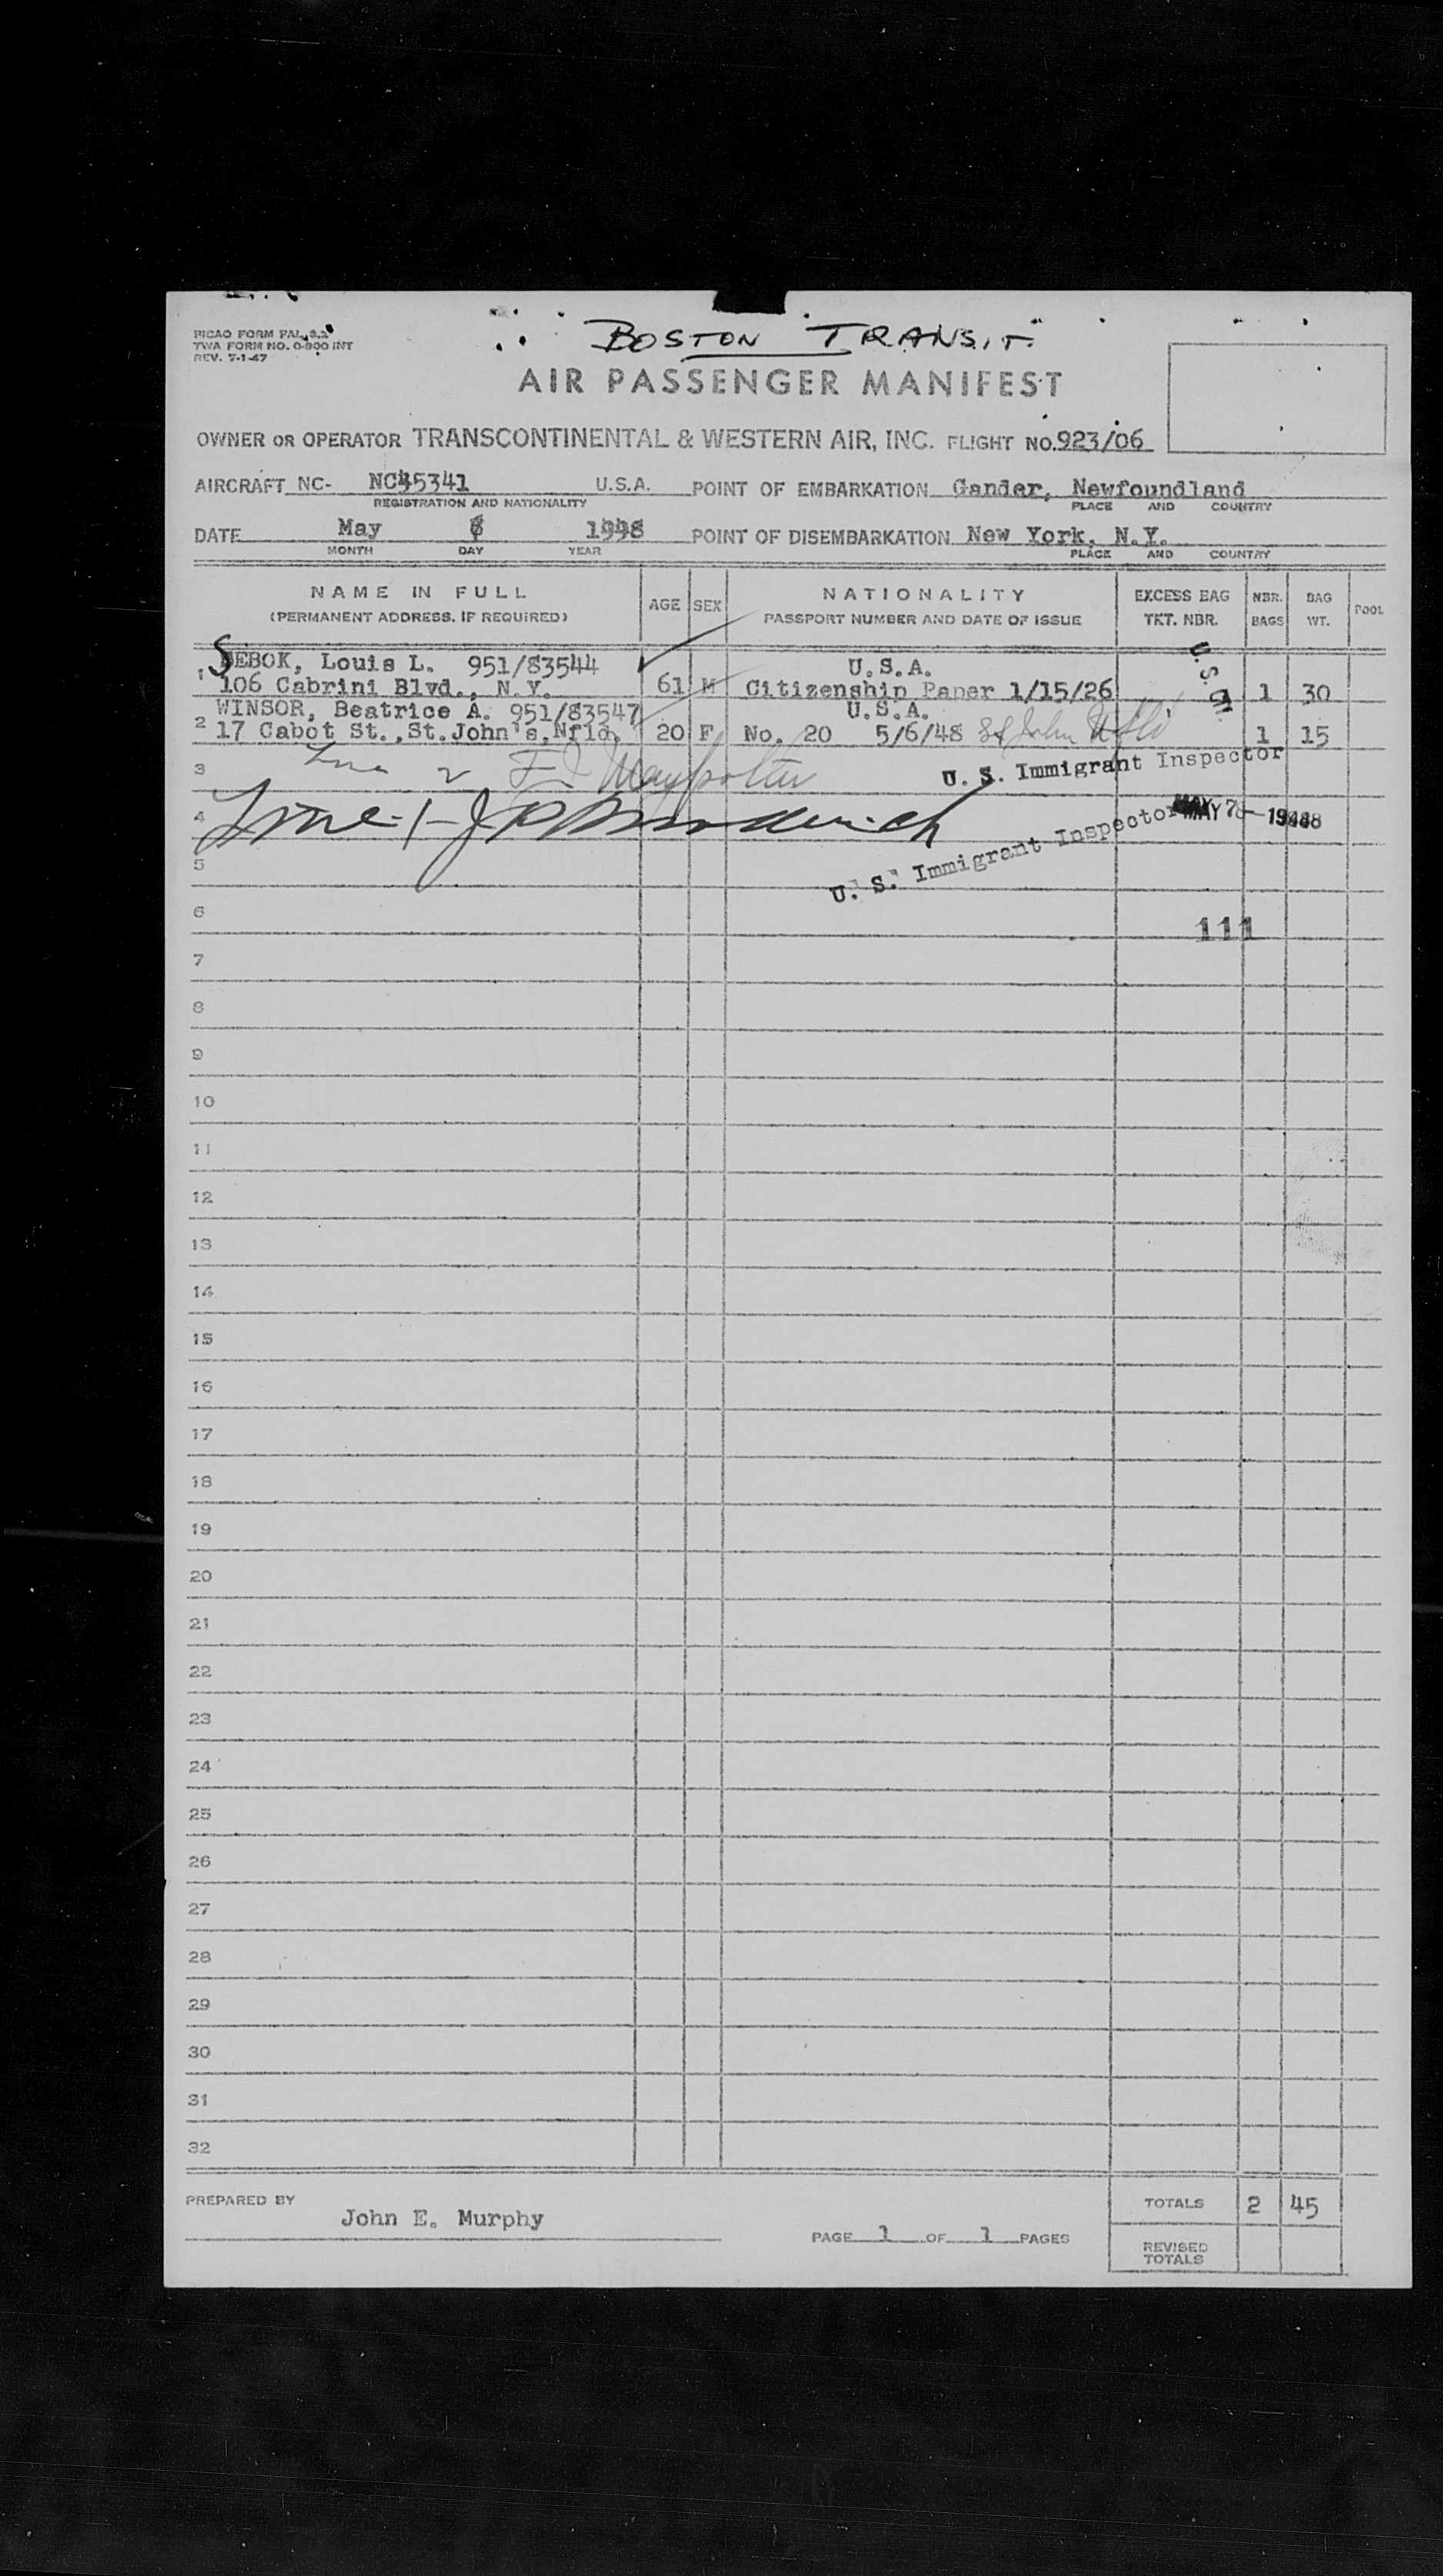 BOSTON TRANSIT.
TWA FORM NO. 0-800 INT
REV. 7-1-47
AIR PASSENGER MANIFEST
OWNER OR OPERATOR TRANSCONTINENTAL & WESTERN AIR, INC. FLIGHT NO. 923/06
AIRCRAFT NC- NC45341 U.S.A. POINT OF EMBARKATION Gander, Newfoundland
REGISTRATION AND NATIONALITY PLACE AND COUNTRY
DATE May 1948 POINT OF DISEMBARKATION New York, N.Y.
MONTH DAY YEAR PLACE AND COUNTRY
NAME IN FULL AGE SEX NATIONALITY EXCESS BAG NBR. BAG POOL
(PERMANENT ADDRESS, IF REQUIRED) PASSPORT NUMBER AND DATE OF ISSUE TKT. NBR. BAGS WT.
1 SEBOK, Louis L. 951/83544 U.S.A.
106 Cabrini Blvd., N.Y. 61 M Citizenship Paper 1/15/26 1 30
WINSOR, Beatrice A. 951/83547 U.S.A.
2 17 Cabot St.,St.John's,Nfld. 20 F No. 20 5/6/48 St John Nfld 1 15
3 U. S. Immigrant Inspector
4
5 U. S. Immigrant Inspector MAY 1948
6 111
7
8
9
10
11
12
13
14
15
16
17
18
19
20
21
22
23
24
25
26
27
28
29
30
31
32
PREPARED BY John E. Murphy
PAGE 1 OF 1 PAGES
TOTALS 2 45
REVISED
TOTALS